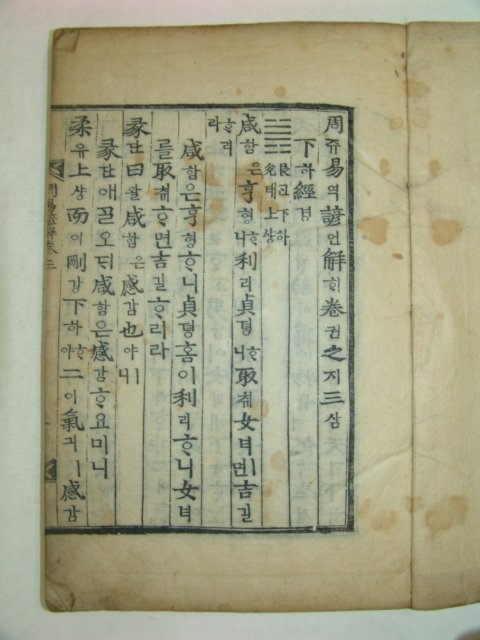 周쥬易역諺언解ᄒᆡ卷권之지三삼
下하經경
䷞艮간下하兌태上상
咸함은亨형ᄒᆞ니利리貞뎡ᄒᆞ니取ᄎᆔ女녀ㅣ면吉길
ᄒᆞ리라
咸함은亨형ᄒᆞ니貞뎡홈이利리ᄒᆞ니女녀
를取ᄎᆔᄒᆞ면吉길ᄒᆞ리라
彖단曰왈咸함은感감也야ㅣ니
彖단애ᄀᆞᆯ오ᄃᆡ咸함은感감ᄒᆞ요미니
柔유上샹而이剛강下하ᄒᆞ야二이氣긔ㅣ感감
周易諺解卷三